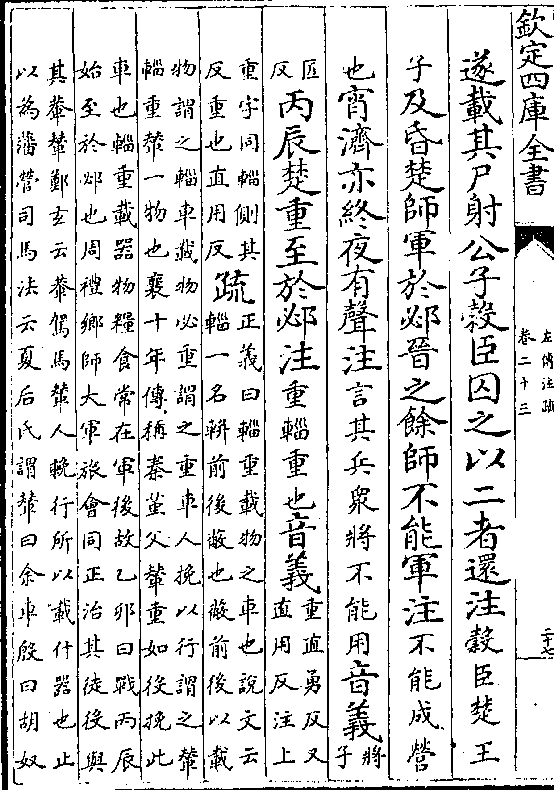 欽定四庫全書
左傳注疏
卷二十三
二十七
遂載其尸射公子縠臣囚之以二者還注縠臣楚王
子及昏楚師軍於邲晉之餘師不能軍注不能成營
也宵濟亦終夜有聲注言其兵衆將不能用音義將子
匠反丙辰楚重至於邲注重輜重也音義重直勇反又直用反注上
重字同輜側其反重也直用反疏正義曰輜重載物之車也説文云輜一名軿前後蔽也蔽前後以載
物謂之輜車載物必重謂之重車人挽以行謂之輦
輜重輦一物也襄十年傳稱秦堇父輦重如役挽此
車也輜重載器物糧食常在軍後故乙邪曰戰丙辰
始至於邲也周禮鄉師大軍旅會同正治其徒役與
其輂輦鄭玄云輂駕馬輦人輓行所以載什器也止
以為藩營司馬法云夏后氏謂輦曰余車殷曰胡奴